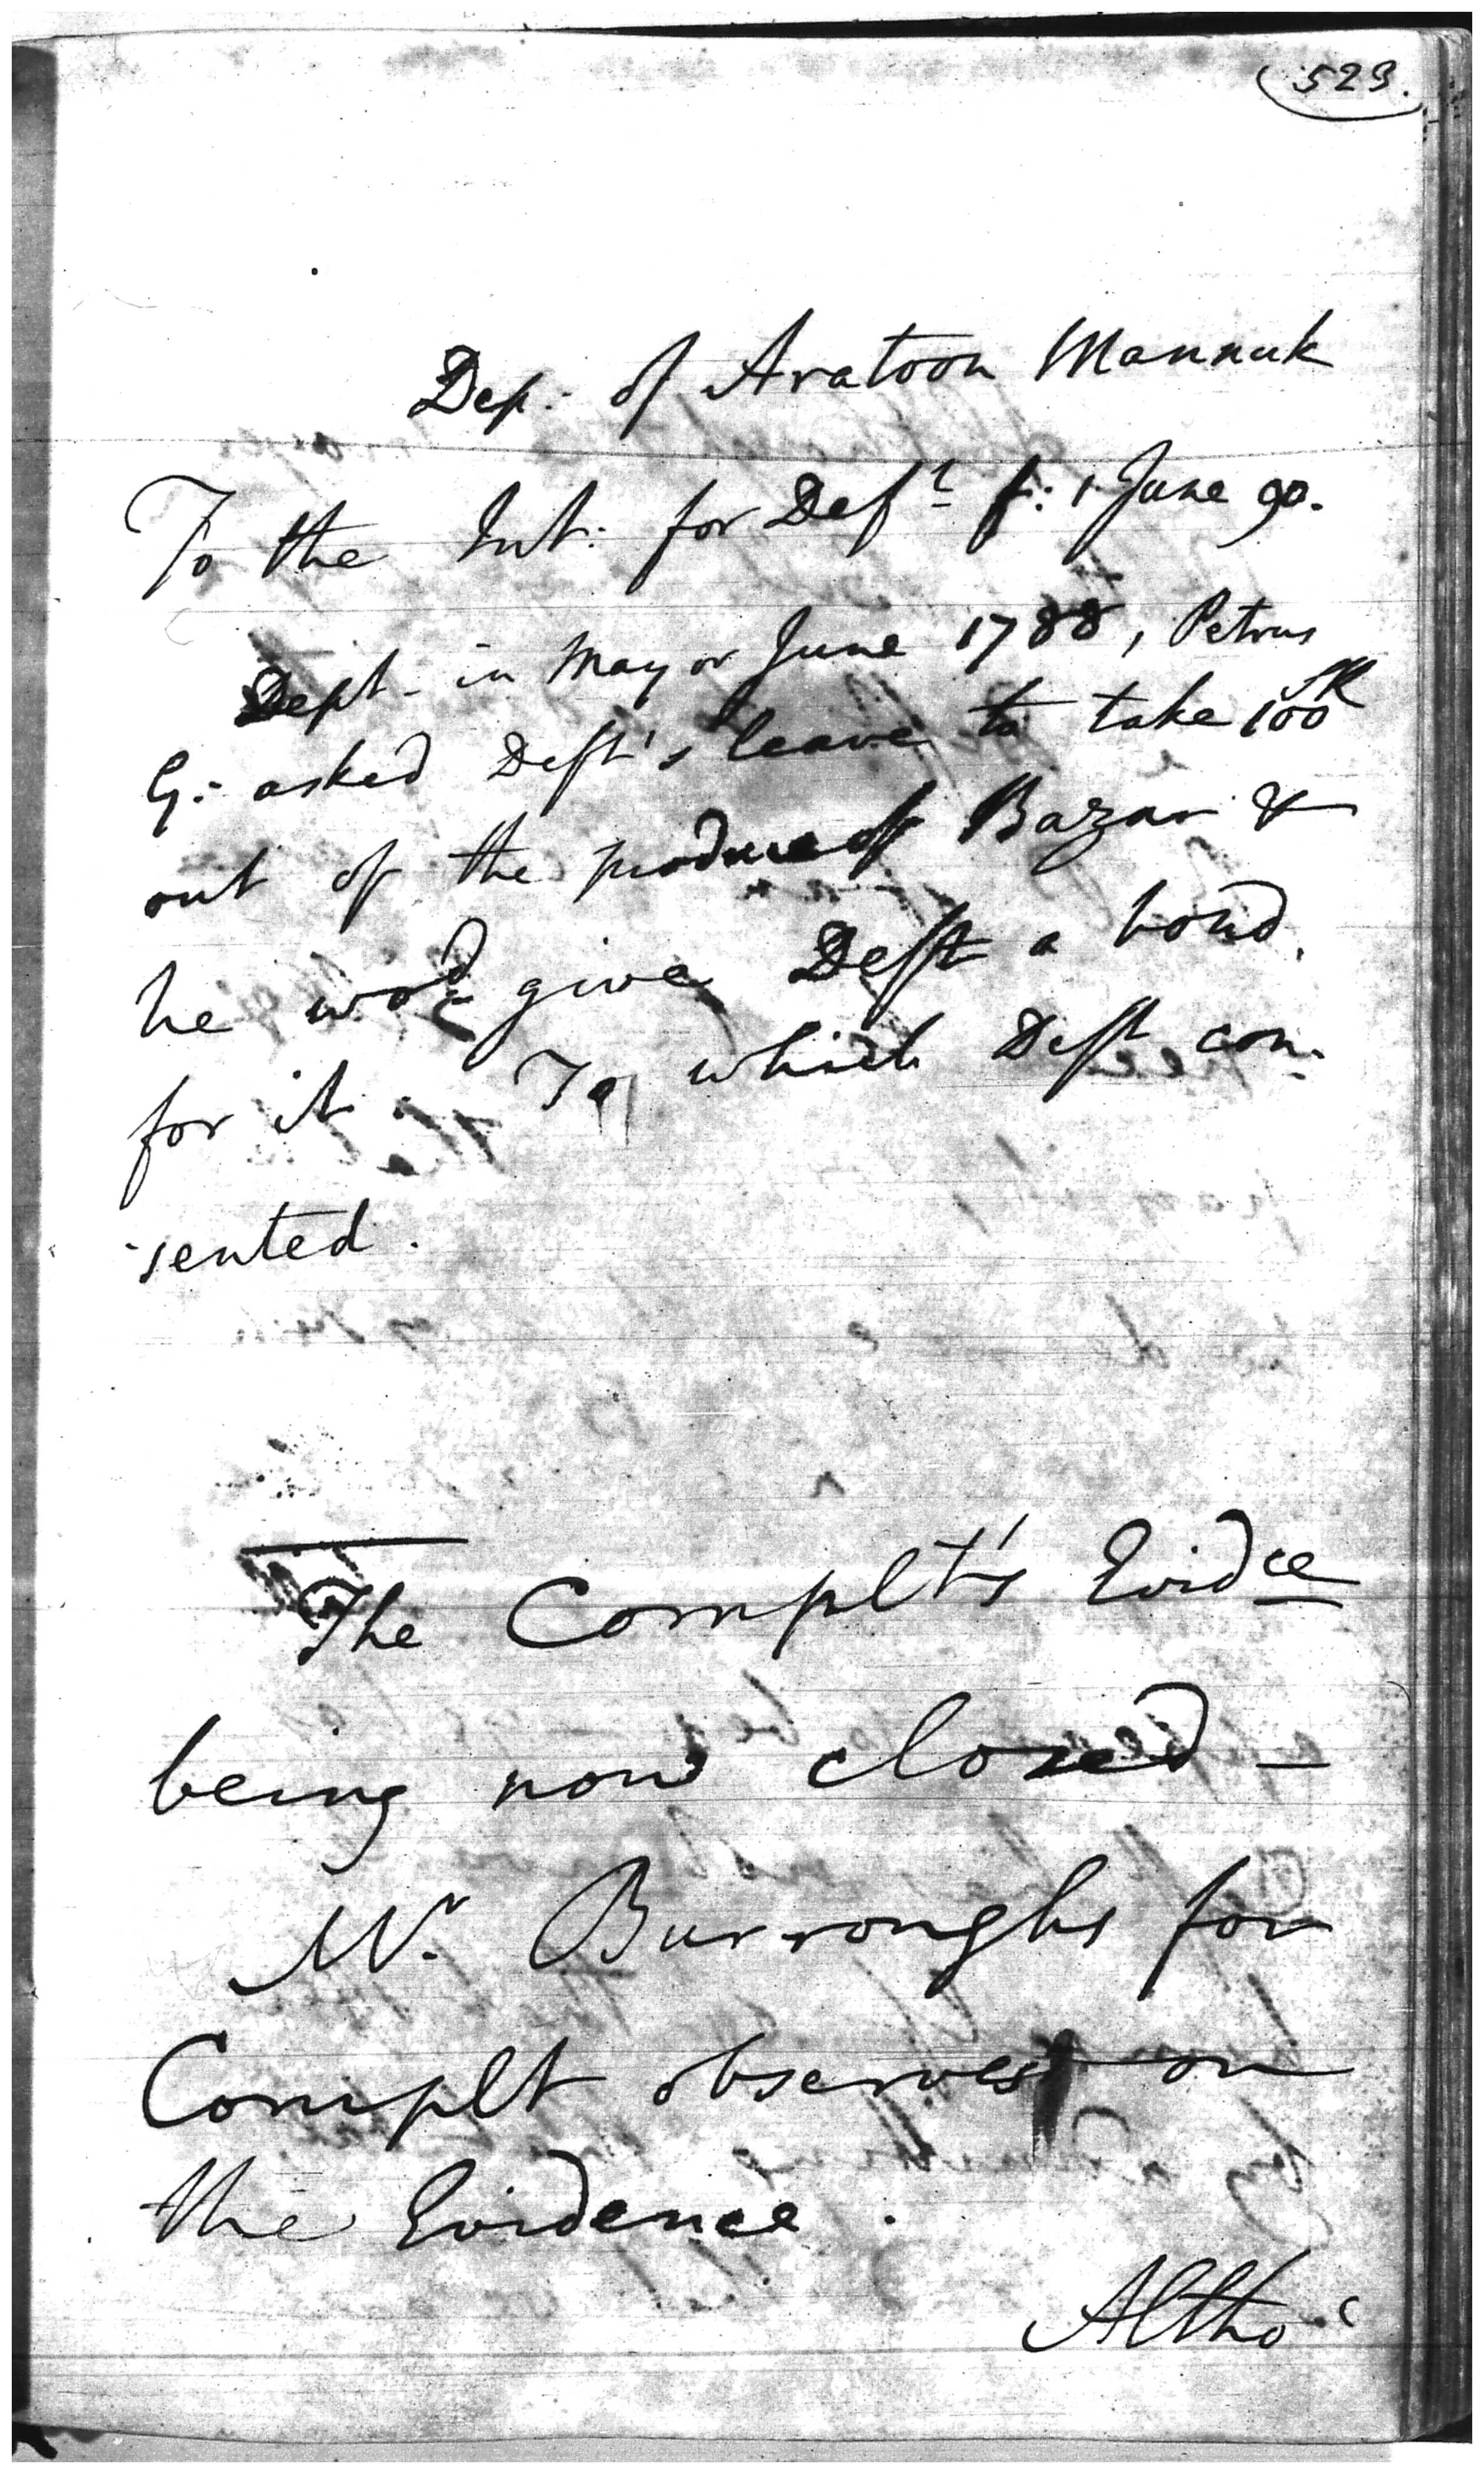 523.
Dep: of Aratoon Mannuk
To the Int: for Deft f: 1 June 90.
Dept - in May or June 1788, Petrus
G: asked Deft's leave to take 100 SR
out of the produce of Bazar &
he wod give Deft a bond
for it. To which Deft con-
-sented.
The Complt's Evidce
being now closed -
Mr. Burroughs for
Complt observes on
the Evidence.
Altho'